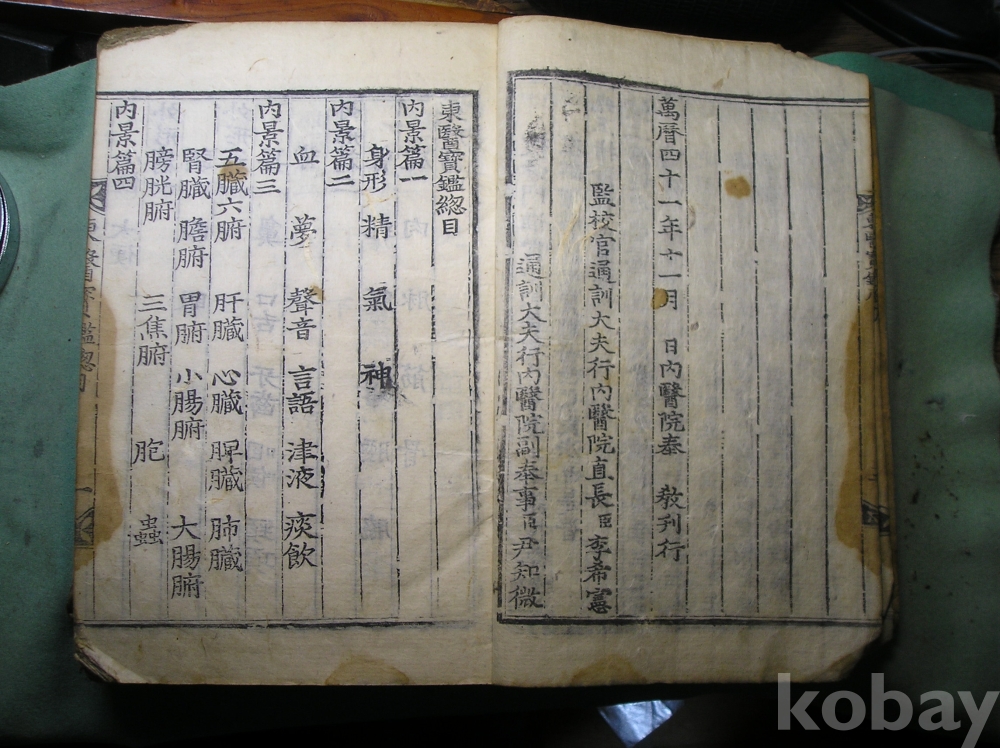 萬曆四十一年十一月 日內醫院奉 敎刊行
監校官通訓大夫行內醫院直長臣李希憲
通訓大夫行內醫院副奉事臣尹知微
東醫寶鑑總目
內景篇一
身形 精 氣 神
內景篇二
血 夢 聲音 言語 津液 痰飮
內景篇三
五臟六腑 肝臟 心臟 脾臟 肺臟
腎臟 膽腑 胃腑 小腸腑 大腸腑
膀胱腑 三焦腑 胞 蟲
內景篇四
東醫寶鑑總目 一
kobay